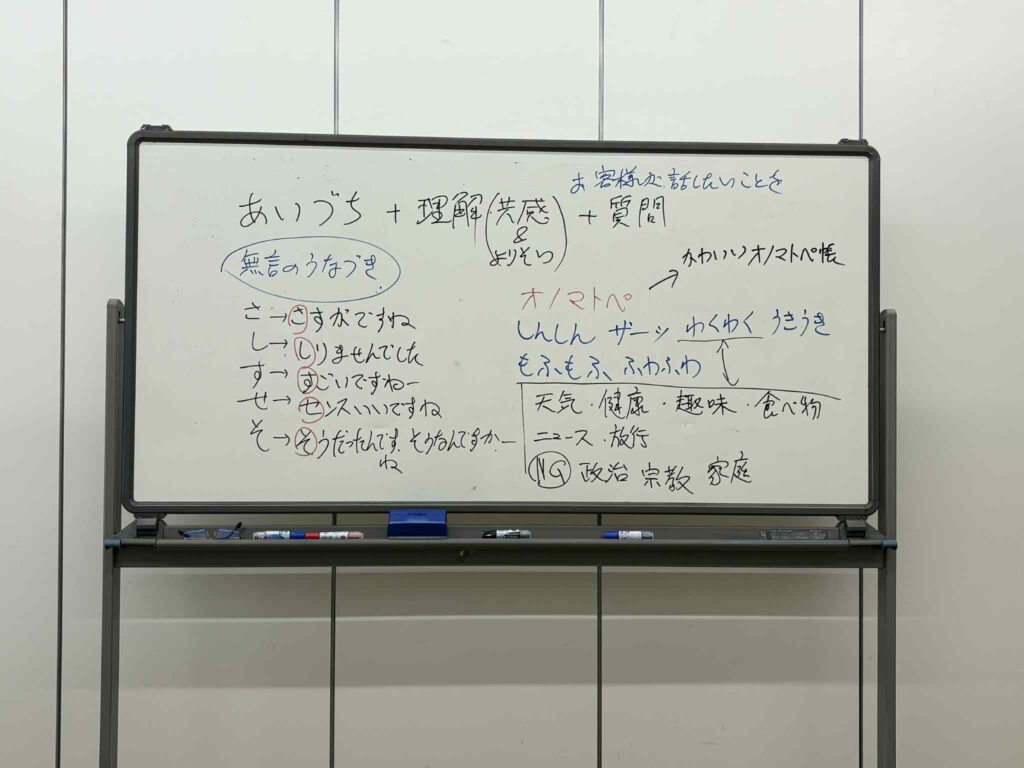 お客様が話したいことを
あいづち + 理解(共感 & よりそい) + 質問
無言のうなづき
さ→さすがですね
し→しりませんでした
す→すごいですねー
せ→センスいいですね
そ→そうだったんですね そうなんですかー
かわいいオノマトペ帳
オノマトペ
しんしん ザーッ わくわく うきうき
もふもふ ふわふわ
天気・健康・趣味・食べ物
ニュース・放行
NG 政治 宗教 家庭